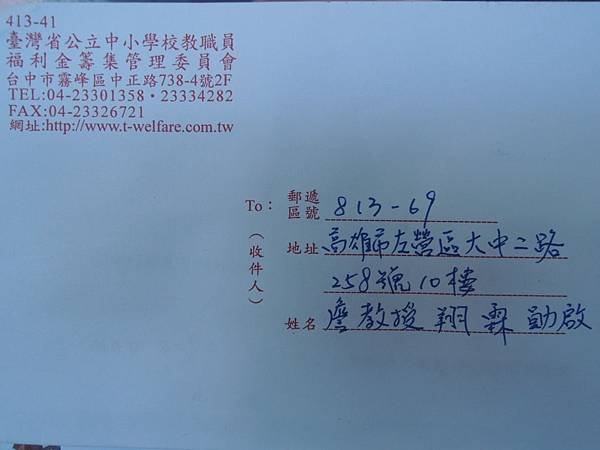 413-41
臺灣省公立中小學校教職員
福利金籌集管理委員會
台中市霧峰區中正路738-4號2F
TEL:04-23301358・23334282
FAX:04-23326721
網址:http://www.t-welfare.com.tw
To：
（收件人）
郵遞區號 813-69
地址 高雄市左營區大中二路
258號10樓
姓名 詹教授 翔霖 勛啟